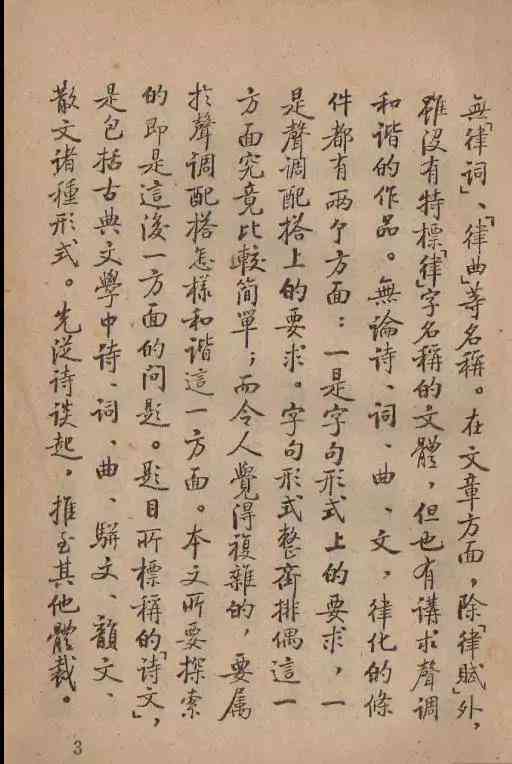 無「律詞」、「律曲」等名稱。在文章方面，除「律賦」外，
雖沒有特標「律」字名稱的文體，但也有講求聲調
和諧的作品。無論詩、詞、曲、文，律化的條
件都有兩个方面：一是字句形式上的要求，一
是聲調配搭上的要求。字句形式整齊排偶這一
方面究竟比較简單；而令人覺得複雜的，要属
於聲調配搭怎樣和諧這一方面。本文所要探索
的即是這後一方面的问题。题目所標稱的「诗文」，
是包括古典文學中诗、词、曲、駢文、韻文、
散文诸種形式。先從诗谈起，推至其他體裁。
3